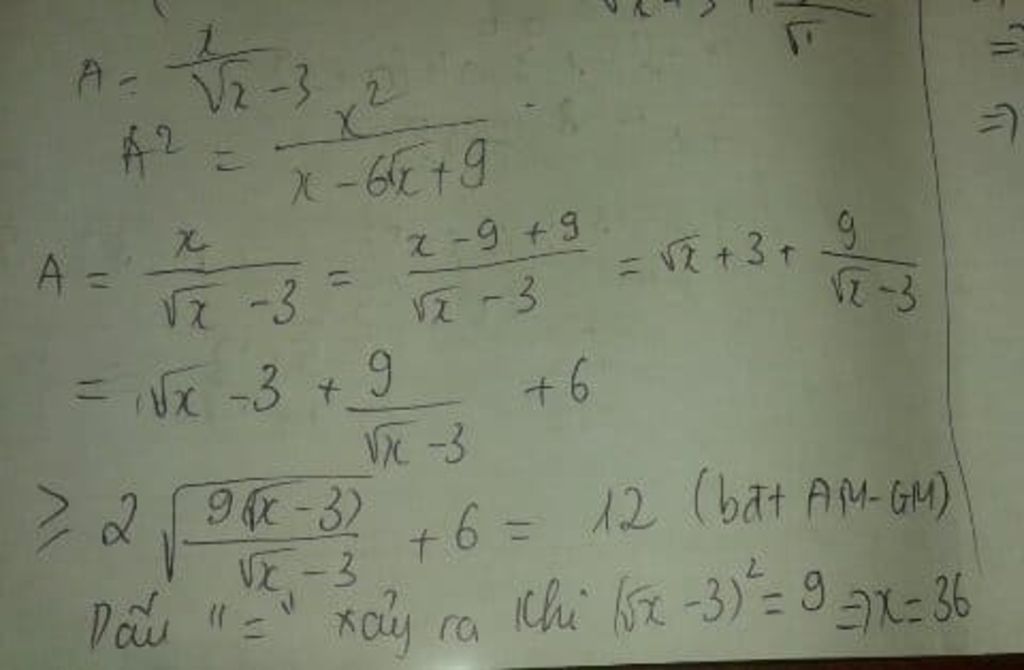 A = x / (√x - 3)
A² = x² / (x - 6√x + 9)
A = x / (√x - 3) = (x - 9 + 9) / (√x - 3) = √x + 3 + 9 / (√x - 3)
= √x - 3 + 9 / (√x - 3) + 6
≥ 2 √(9(√x - 3) / (√x - 3)) + 6 = 12 (bđt AM-GM)
Dấu "=" xảy ra khi (√x - 3)² = 9 => x = 36
=>
=>